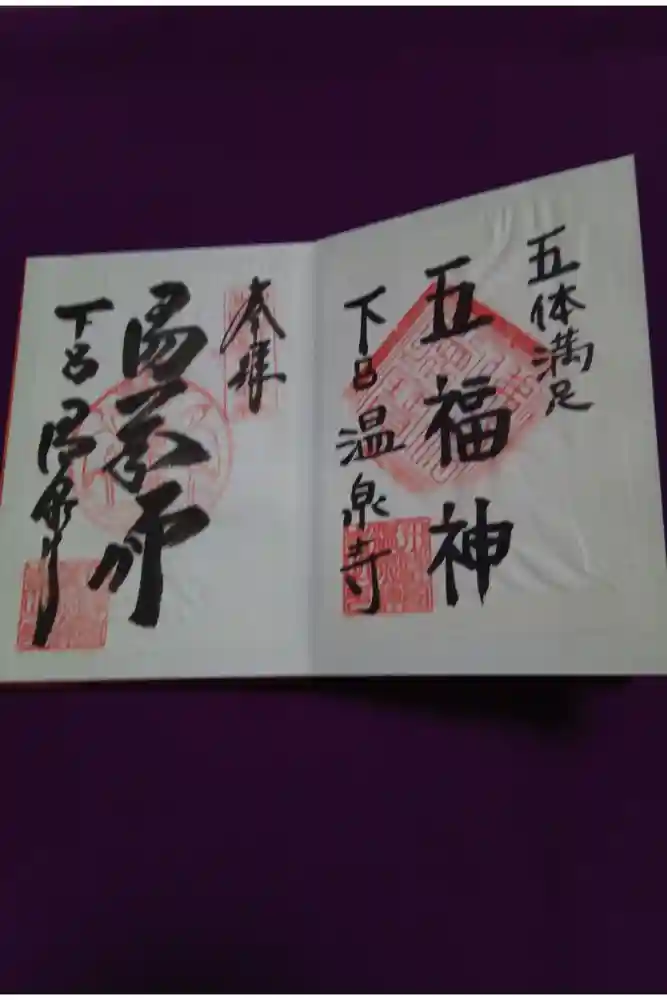 五体満足
五福神
下呂温泉寺
奉拝
湯薬師
下呂温泉寺